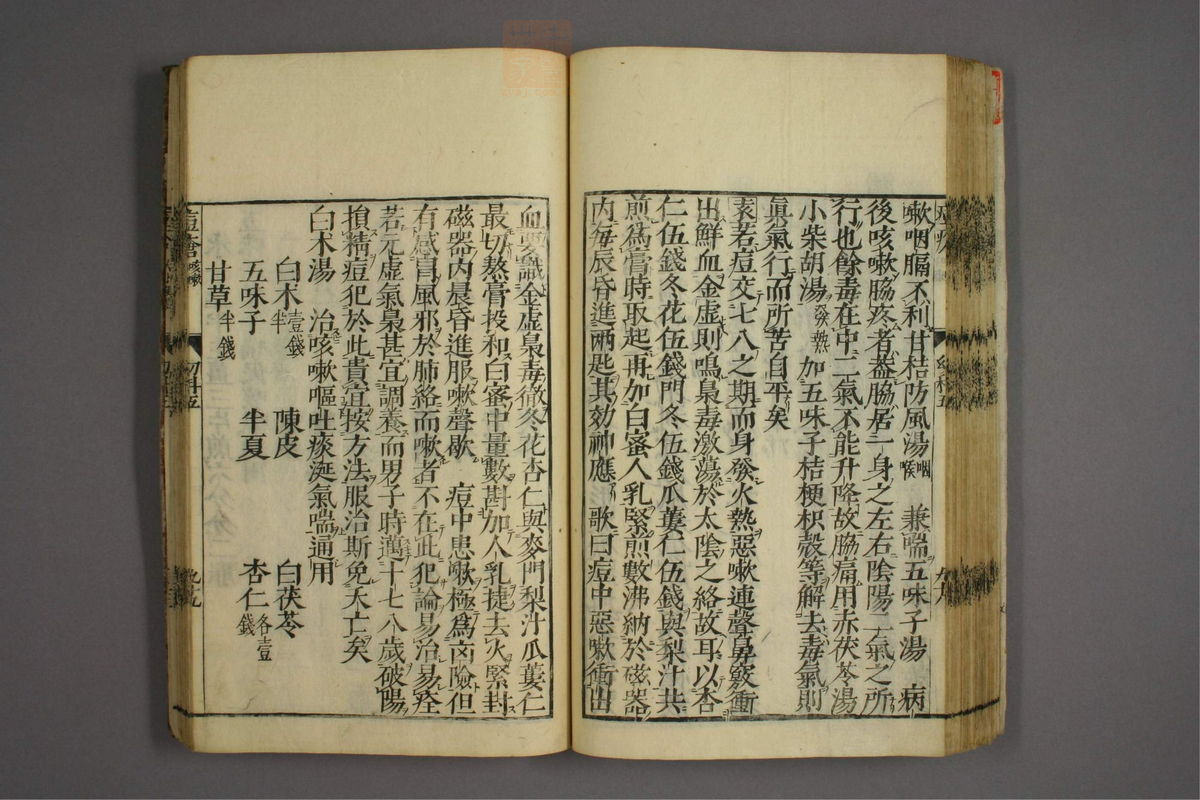 嗽咽膈不利甘桔防風湯咽喉 兼喘五味子湯 病
後咳嗽脇疼者蓋脇居一身之左右陰陽二氣之所
行也餘毒在中二氣不能升降故脇痛用赤茯苓湯
小柴胡湯發熱加五味子桔梗枳殼等解去毒氣則
眞氣行而所苦自平矣
袤若痘交七八之期而身發火熱惡嗽連聲鼻竅衝
出鮮血金虚則鳴梟毒激蕩於太陰之絡故耳以杏
仁伍錢冬花伍錢門冬伍錢瓜蔞仁伍錢與梨汁共
煎爲膏時取起再加白蜜人乳緊煎數沸納於磁器
内每辰昏進兩匙其効神應 歌曰痘中惡嗽衝出
血要識金虚梟毒徹冬花杏仁與麥門梨汁瓜蔞仁
最切熬膏投和白蜜中量數斟加人乳捷去火緊封
磁器内晨昏進服嗽聲歇 痘中患嗽極爲凶險但
有感冐風邪於肺絡而嗽者不在此犯論易治易痊
若元虚氣梟甚宜調養而男子時邁十七八歲破陽
損精痘犯於此貴宜按方法服治斯免夭亡矣
白木湯 治咳嗽嘔吐痰涎氣喘通用
白木壹錢半 陳皮 白茯苓
五味子 半夏 杏仁各壹錢
甘草半錢
痘疹 咳嗽 幼科五 九十九